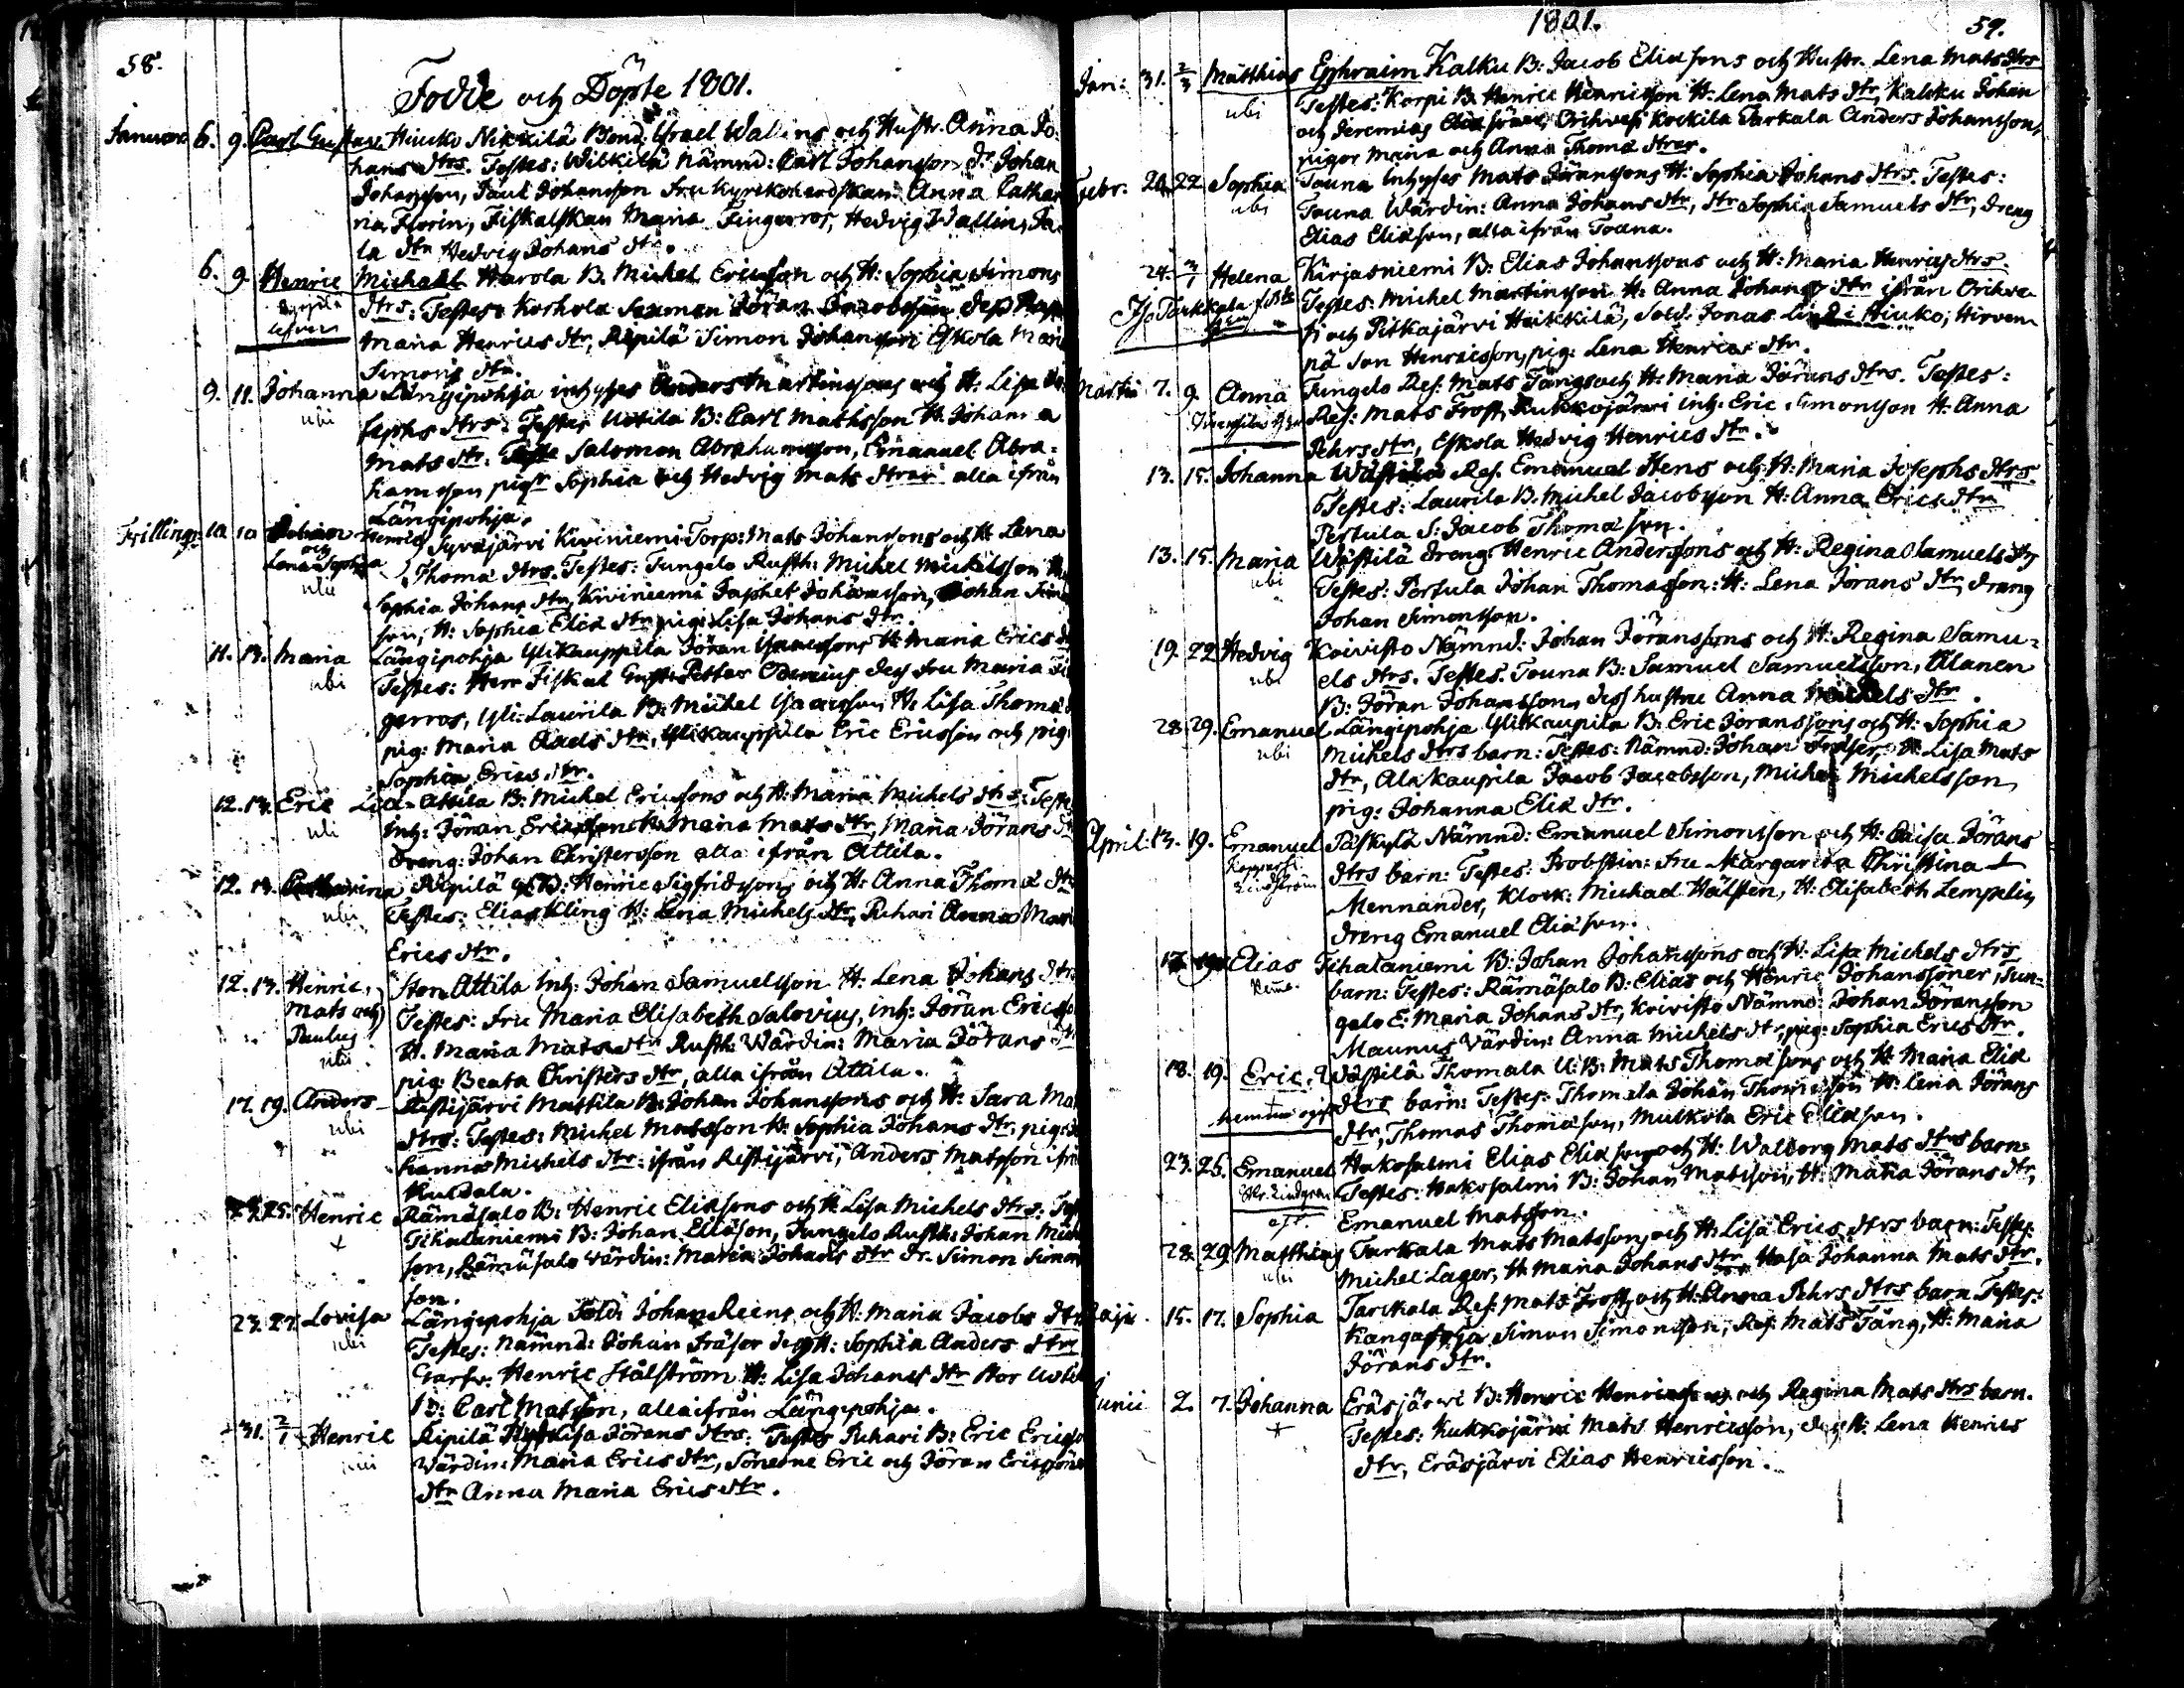 58.
Födde och Döpte 1801.
Januari 6. 9. Carl Gustav, Hiucko Nikkilä Bond. Israel Walens och Hustr. Anna Jo-
hans dtrs. Testes: Wilkilä Nämnd: Carl Johansson, Dr Johan
Johansson, Paul Johansson fru Kyrkoherdskan Anna Catha
ria Florin, Fiskalskan Maria Fingerros, Hedvig Wallin, Ja-
la dtr Hedvig Johans dtr.
6. 9. Henric Michael Harola B. Michel Ericsson och H: Sophia Simons
dtrs: Testes: Korhola Saxman Jöran Jacobsson dess
Maria Henrics dtr, Ripilä Simon Johansson Eskola Mari
Simons dtr.
9. 11. Johanna Längipohja inhyses Anders Martinssons och H. Lisa Jo-
ubi sephs dtrs: Testes Uotila B: Carl Mathsson H. Johanna
Mats dtr. Salomon Abrahamsson, Emanuel Abra-
hamsson pigr Sophia och Hedvig Mats dtrar alla ifrån
Längipohja.
Trillingr 10 10 Johan Henric Syväjärvi Kiviniemi Torp: Mats Johanssons och H Lena
och Lena Sophia Thomæ dtrs. Testes: Jungelo Rusth: Michel Michelsson
ubi Sophia Johans dtr, Kiviniemi Japhet Johansson, Johan Sim
son, H: Sophia Eliæ dtr pig: Lisa Johans dtr.
11. 13. Maria Längipohja Ylikauppila Jöran Isaacssons H Maria Erics d
ubi Testes: Herr Fiskal Gust: Petter Odenius dess fru Maria Fi
gerros, Yli: Laurila B: Michel Isaacsson, H: Lisa Thomæ
pig: Maria Axels dtr, Ylikauppila Eric Ericsson och pig:
Sophia Erics dtr.
12. 13. Eric Attila B: Michel Ericssons och H: Maria Michels dtrs: Teste
ubi inh: Jöran Ericsson H: Maria Mats dtr, Maria Jörans d
dreng: Johan Christersson alla ifrån Attila.
12. 13. Catharina Ripilä B: Henric Sigfridssons och H: Anna Thomæ dtr
ubi Testes: Elias Kling H: Lena Michels dtr, Puhari Anna Mari
Erics dtr.
12. 13. Henric, Stor Attila Inh: Johan Samuelsson H: Lena Johans dtrs
Mats och Testes: fru Maria Elisabeth Salovius, inh: Jöran Erics
Paulus H. Maria Mats dtr Rusth: Värdin: Maria Jörans dtr
ubi pig: Beata Christers dtr, alla ifrån Attila.
17. 19. Anders Ristijärvi Mattila B: Johan Johanssons och H: Sara Ma
ubi dtrs: Testes: Michel Matsson H: Sophia Johans dtr, pig: Jo
hanna Michels dtr: ifrån Ristijärvi, Anders Matsson ifrå
23. 25. Henric Rämäsalo B: Henric Eliæsons och H Lisa Michels dtrs. Tes
+ Tihalaniemi B: Johan Eliæson, Jungelo Rusth: Johan Mich
son, Rämäsalo värdin: Maria Johans dtr dr. Simon Simon
son.
23. 27. Lovisa Längipohja Sold: Johan Reens och H: Maria Jacobs dtr
ubi Testes: Nämnd: Johan Fräser dess H: Sophia Anders dtr
Garfv: Henric Stålström H: Lisa Johans dtr Stor Uotil
B: Carl Matsson, alla ifrån Längipohja.
31. 2/1 Henric Ripilä Lisa Jörans dtrs: Testes Puhari B: Eric Ericss
ubi Värdin: Maria Erics dtr, Sönerne Eric och Jöran Ericssöner
dtr Anna Maria Erics dtr.
1801.
59.
Jan: 31. 2/3 Matthias Ephraim Kalku B: Jacob Eliæsons och Hustr. Lena Mats dtrs
ubi Testes: Korpi B. Henric Henricsson H: Lena Mats dtr, Kalku Johan
och Jeremias Eliæ söner, Orihvesi Kockila Tarkala Anders Johansson,
pigor Maria och Anna Thomæ dtrar.
Febr: 20 22 Sophia Touna Inhyses Mats Jöranssons H: Sophia Johans dtrs. Testes:
ubi Touna Wärdin: Anna Johans dtr, dtr Sophia Samuels dtr, Dreng
Elias Eliæson, alla ifrån Touna.
24. 3/1 Helena Kirjasniemi B: Elias Johanssons och H: Maria Henrics dtrs.
Testes: Michel Martinsson H: Anna Johans dtr ifrån Orihve-
si och Pitkajärvi Heikkilä, Sold. Jonas Lind i Hiuko, Hirven
pä Jon Henricsson, pig: Lena Henrics dtr.
Martii 7. 9. Anna Jungelo Res: Mats Tångs och H: Maria Jörans dtrs. Testes:
Res: Mats Frost, Kukkojärvi inh: Eric Simonsson H: Anna
Pehrs dtr, Eskola Hedvig Henrics dtr.
13. 15. Johanna Wästilä Res. Emanuel Hens och H: Maria Josephs dtrs.
Testes: Laurila B: Michel Jacobsson H: Anna Erics dtr
Pertula S: Jacob Thomæson.
13. 15. Maria Wästilä dreng: Henric Anderssons och H: Regina Samuels dtrs
ubi Testes: Pertula Johan Thomasson: H: Lena Jörans dtr, dreng
Johan Simonsson.
19. 22 Hedvig Koivisto Nämnd: Johan Jöranssons och H: Regina Samu-
ubi els dtrs. Testes. Touna B: Samuel Samuelsson, Alanen
B: Jöran Johansson, dess hustru Anna Michels dtr.
28 29. Emanuel Längipohja Ylikaupila B: Eric Joranssons och H: Sophia
ubi Michels dtrs barn: Testes: Nämnd: Johan Fräser, H: Lisa Mats
dtr, Alikaupila Jacob Jacobsson, Michel Michelsson,
pig: Johanna Eliæ dtr.
April: 13. 19. Emanuel Päskylä Nämnd: Emanuel Simonsson och H: Caisa Jörans
dtrs barn: Testes: Probstin: fru Margareta Christina
Mennander, Klock: Michael Hälsten, H: Elisabeth Lempelin,
dreng Emanuel Eliæson.
17. 19. Elias Tihalaniemi B: Johan Johanssons och H: Lisa Michels dtrs
barn: Testes: Rämäsalo B: Elias och Henric Johanssöner, Jun-
gelo E: Maria Johans dtr, Koivisto Nämnd: Johan Jöransson
Maunus Värdin: Anna Michels dtr, pig: Sophia Erics dtr.
18. 19. Eric. Wästilä Thomala U: B: Mats Thomæsons och H Maria Eliæ
dtrs barn: Testes: Thomala Johan Thomæson H: Lena Jörans
dtr, Thomas Thomæson, Mulkola Eric Eliæson.
23. 26. Emanuel Hakosalmi Elias Eliæsons och H: Walborg Mats dtrs barn:
Testes: Hakosalmi B: Johan Matsson, H: Maria Jörans dtr,
Emanuel Matsson.
28. 29. Matthias Tarkala Mats Matssons, och H: Lisa Erics dtrs barn: Testes:
ubi Michel Lager, H Maria Johans dtr Johanna Mats dtr.
Maji 15. 17. Sophia Tarckala Res: Mats Frost, och H: Anna Pehrs dtrs barn Testes:
Simon Simonsson, Res: Mats Tång, H: Maria
Jörans dtr.
Junii 2. 7. Johanna Eräsjärvi B: Henric Henricssons och Regina Mats dtrs barn.
+ Testes: Kukkojärvi Mats Henricsson, dess H: Lena Henrics
dtr, Eräsjärvi Elias Henricsson.